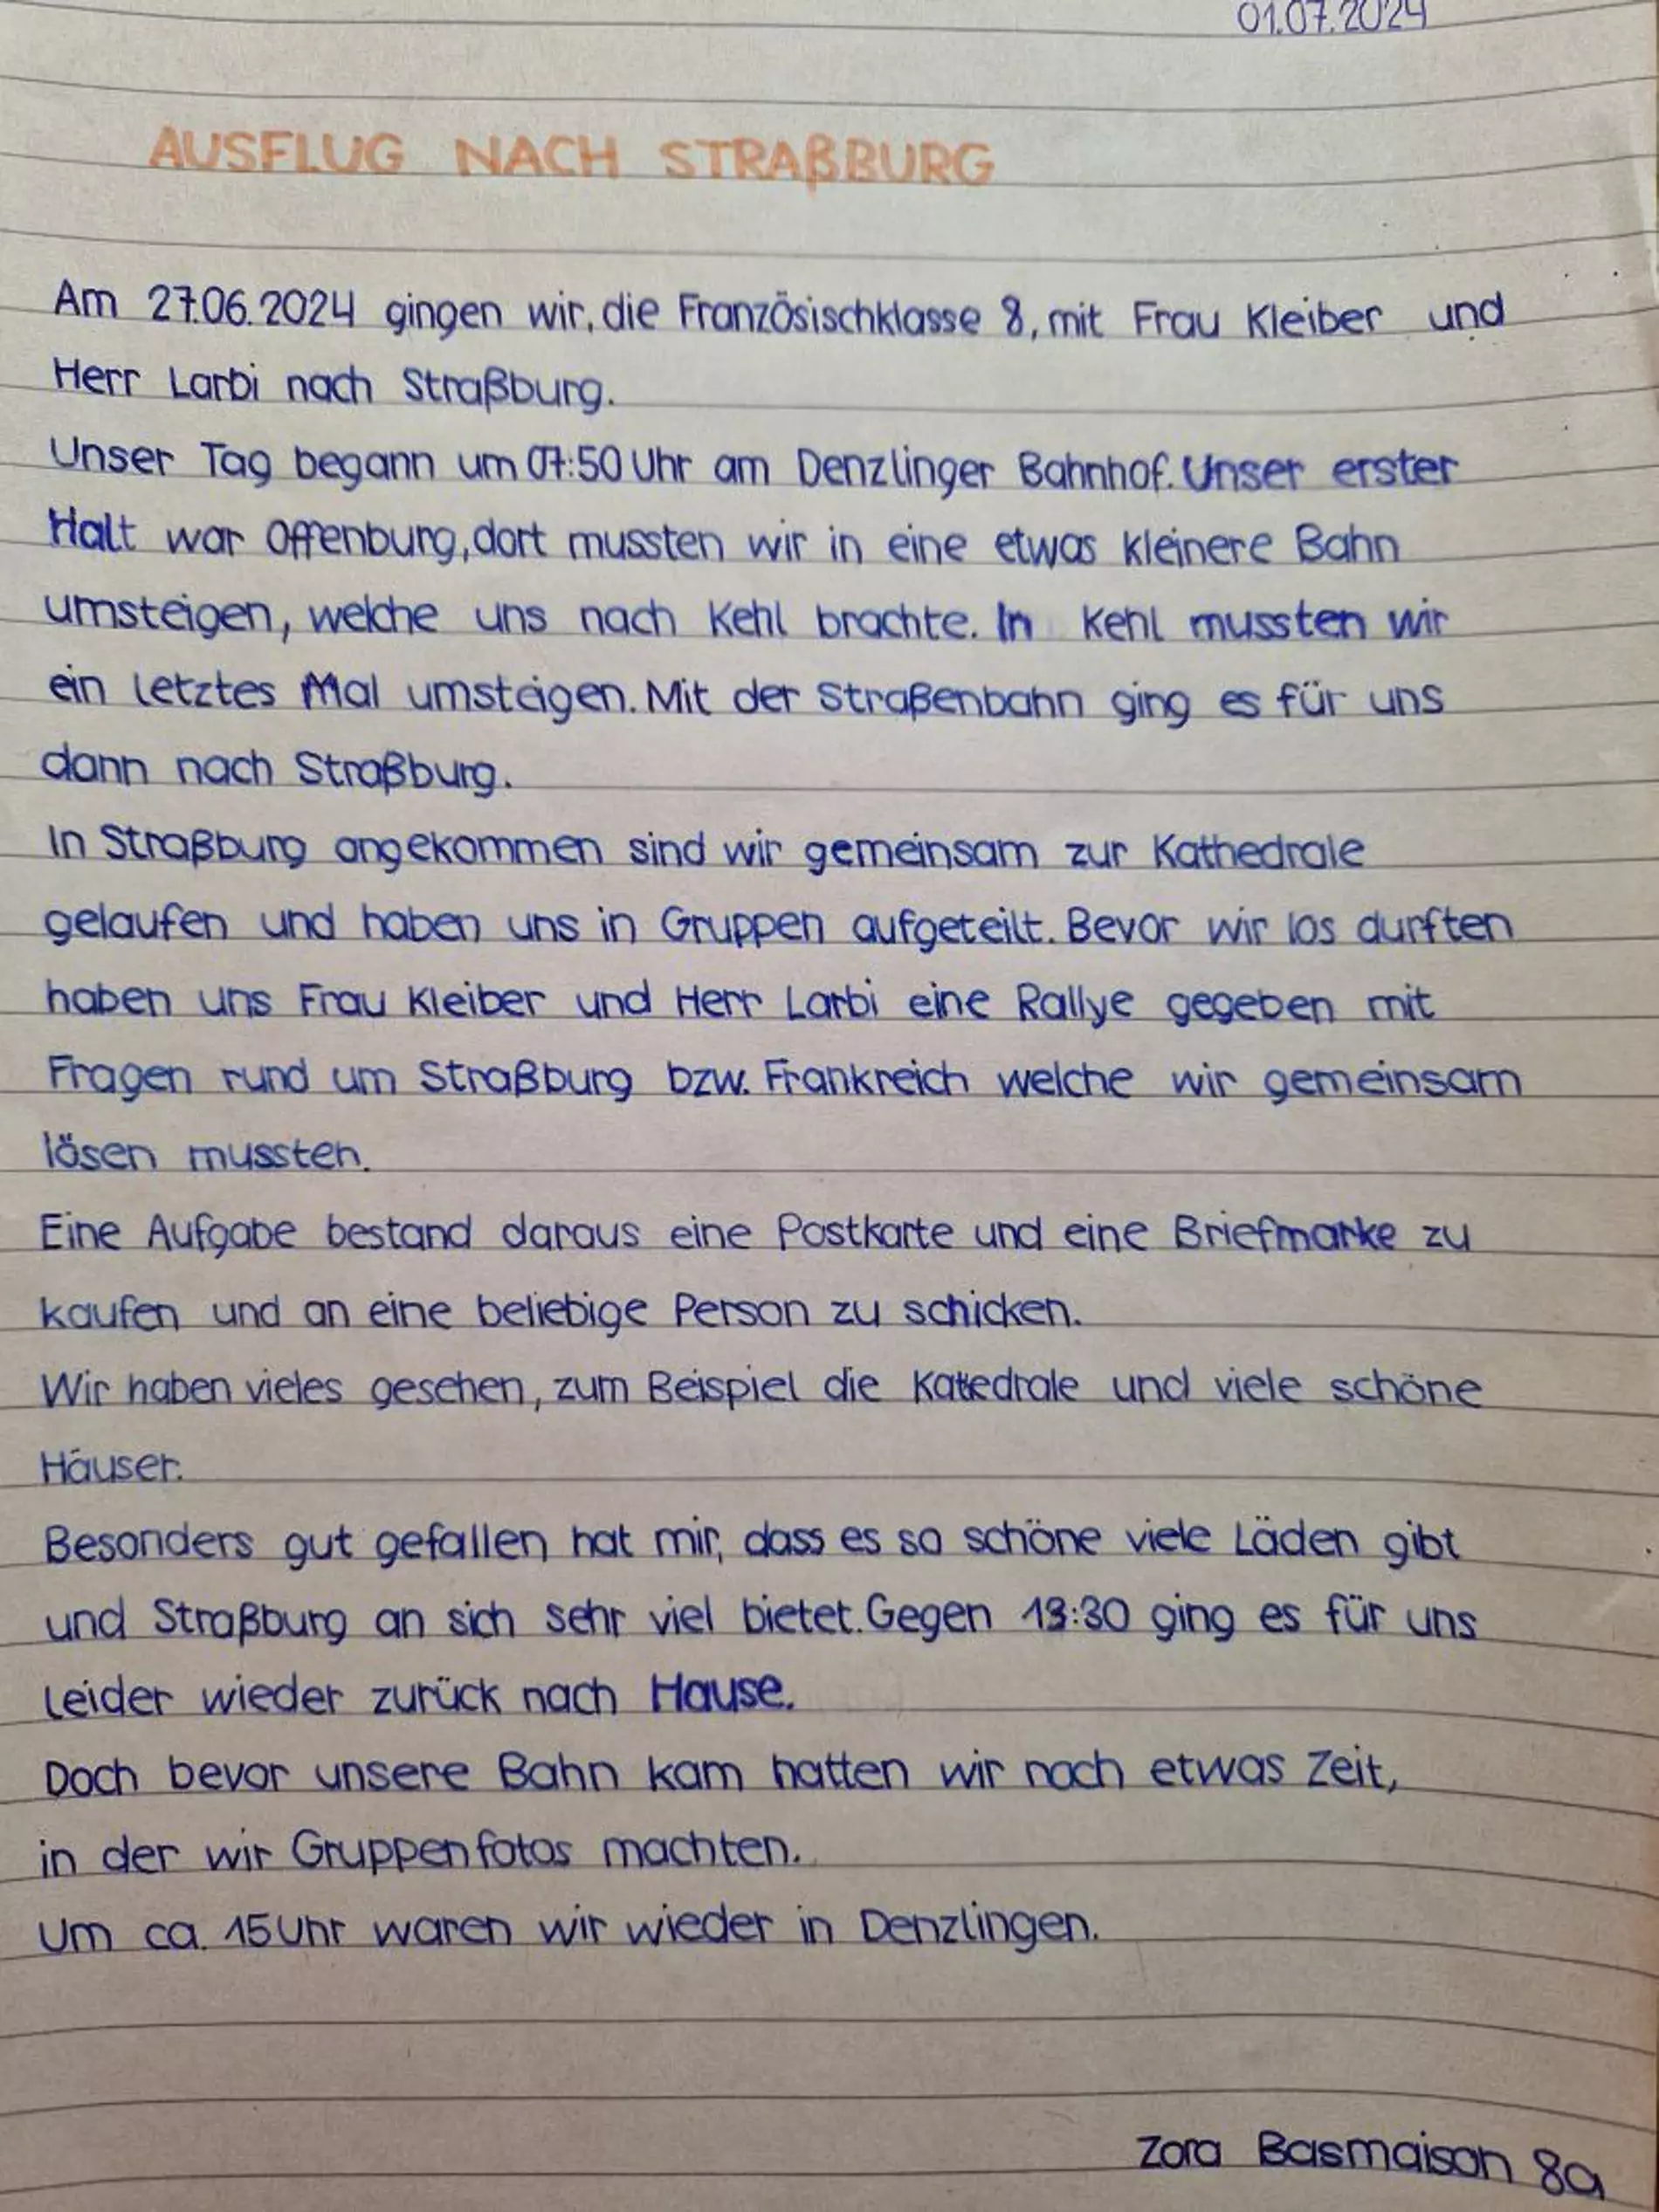 01.07.2024
AUSFLUG NACH STRAßBURG
Am 27.06.2024 gingen wir, die Französischklasse 8, mit Frau Kleiber und
Herr Larbi nach Straßburg.
Unser Tag begann um 07:50 Uhr am Denzlinger Bahnhof. Unser erster
Halt war Offenburg, dort mussten wir in eine etwas kleinere Bahn
umsteigen, welche uns nach Kehl brachte. In Kehl mussten wir
ein letztes Mal umsteigen. Mit der Straßenbahn ging es für uns
dann nach Straßburg.
In Straßburg angekommen sind wir gemeinsam zur Kathedrale
gelaufen und haben uns in Gruppen aufgeteilt. Bevor wir los durften
haben uns Frau Kleiber und Herr Larbi eine Rallye gegeben mit
Fragen rund um Straßburg bzw. Frankreich welche wir gemeinsam
lösen mussten.
Eine Aufgabe bestand daraus eine Postkarte und eine Briefmarke zu
kaufen und an eine beliebige Person zu schicken.
Wir haben vieles gesehen, zum Beispiel die Katedrale und viele schöne
Häuser.
Besonders gut gefallen hat mir, dass es so schöne viele Läden gibt
und Straßburg an sich sehr viel bietet. Gegen 13:30 ging es für uns
leider wieder zurück nach Hause.
Doch bevor unsere Bahn kam hatten wir noch etwas Zeit,
in der wir Gruppenfotos machten.
Um ca. 15 Uhr waren wir wieder in Denzlingen.
Zora Basmaison 8a